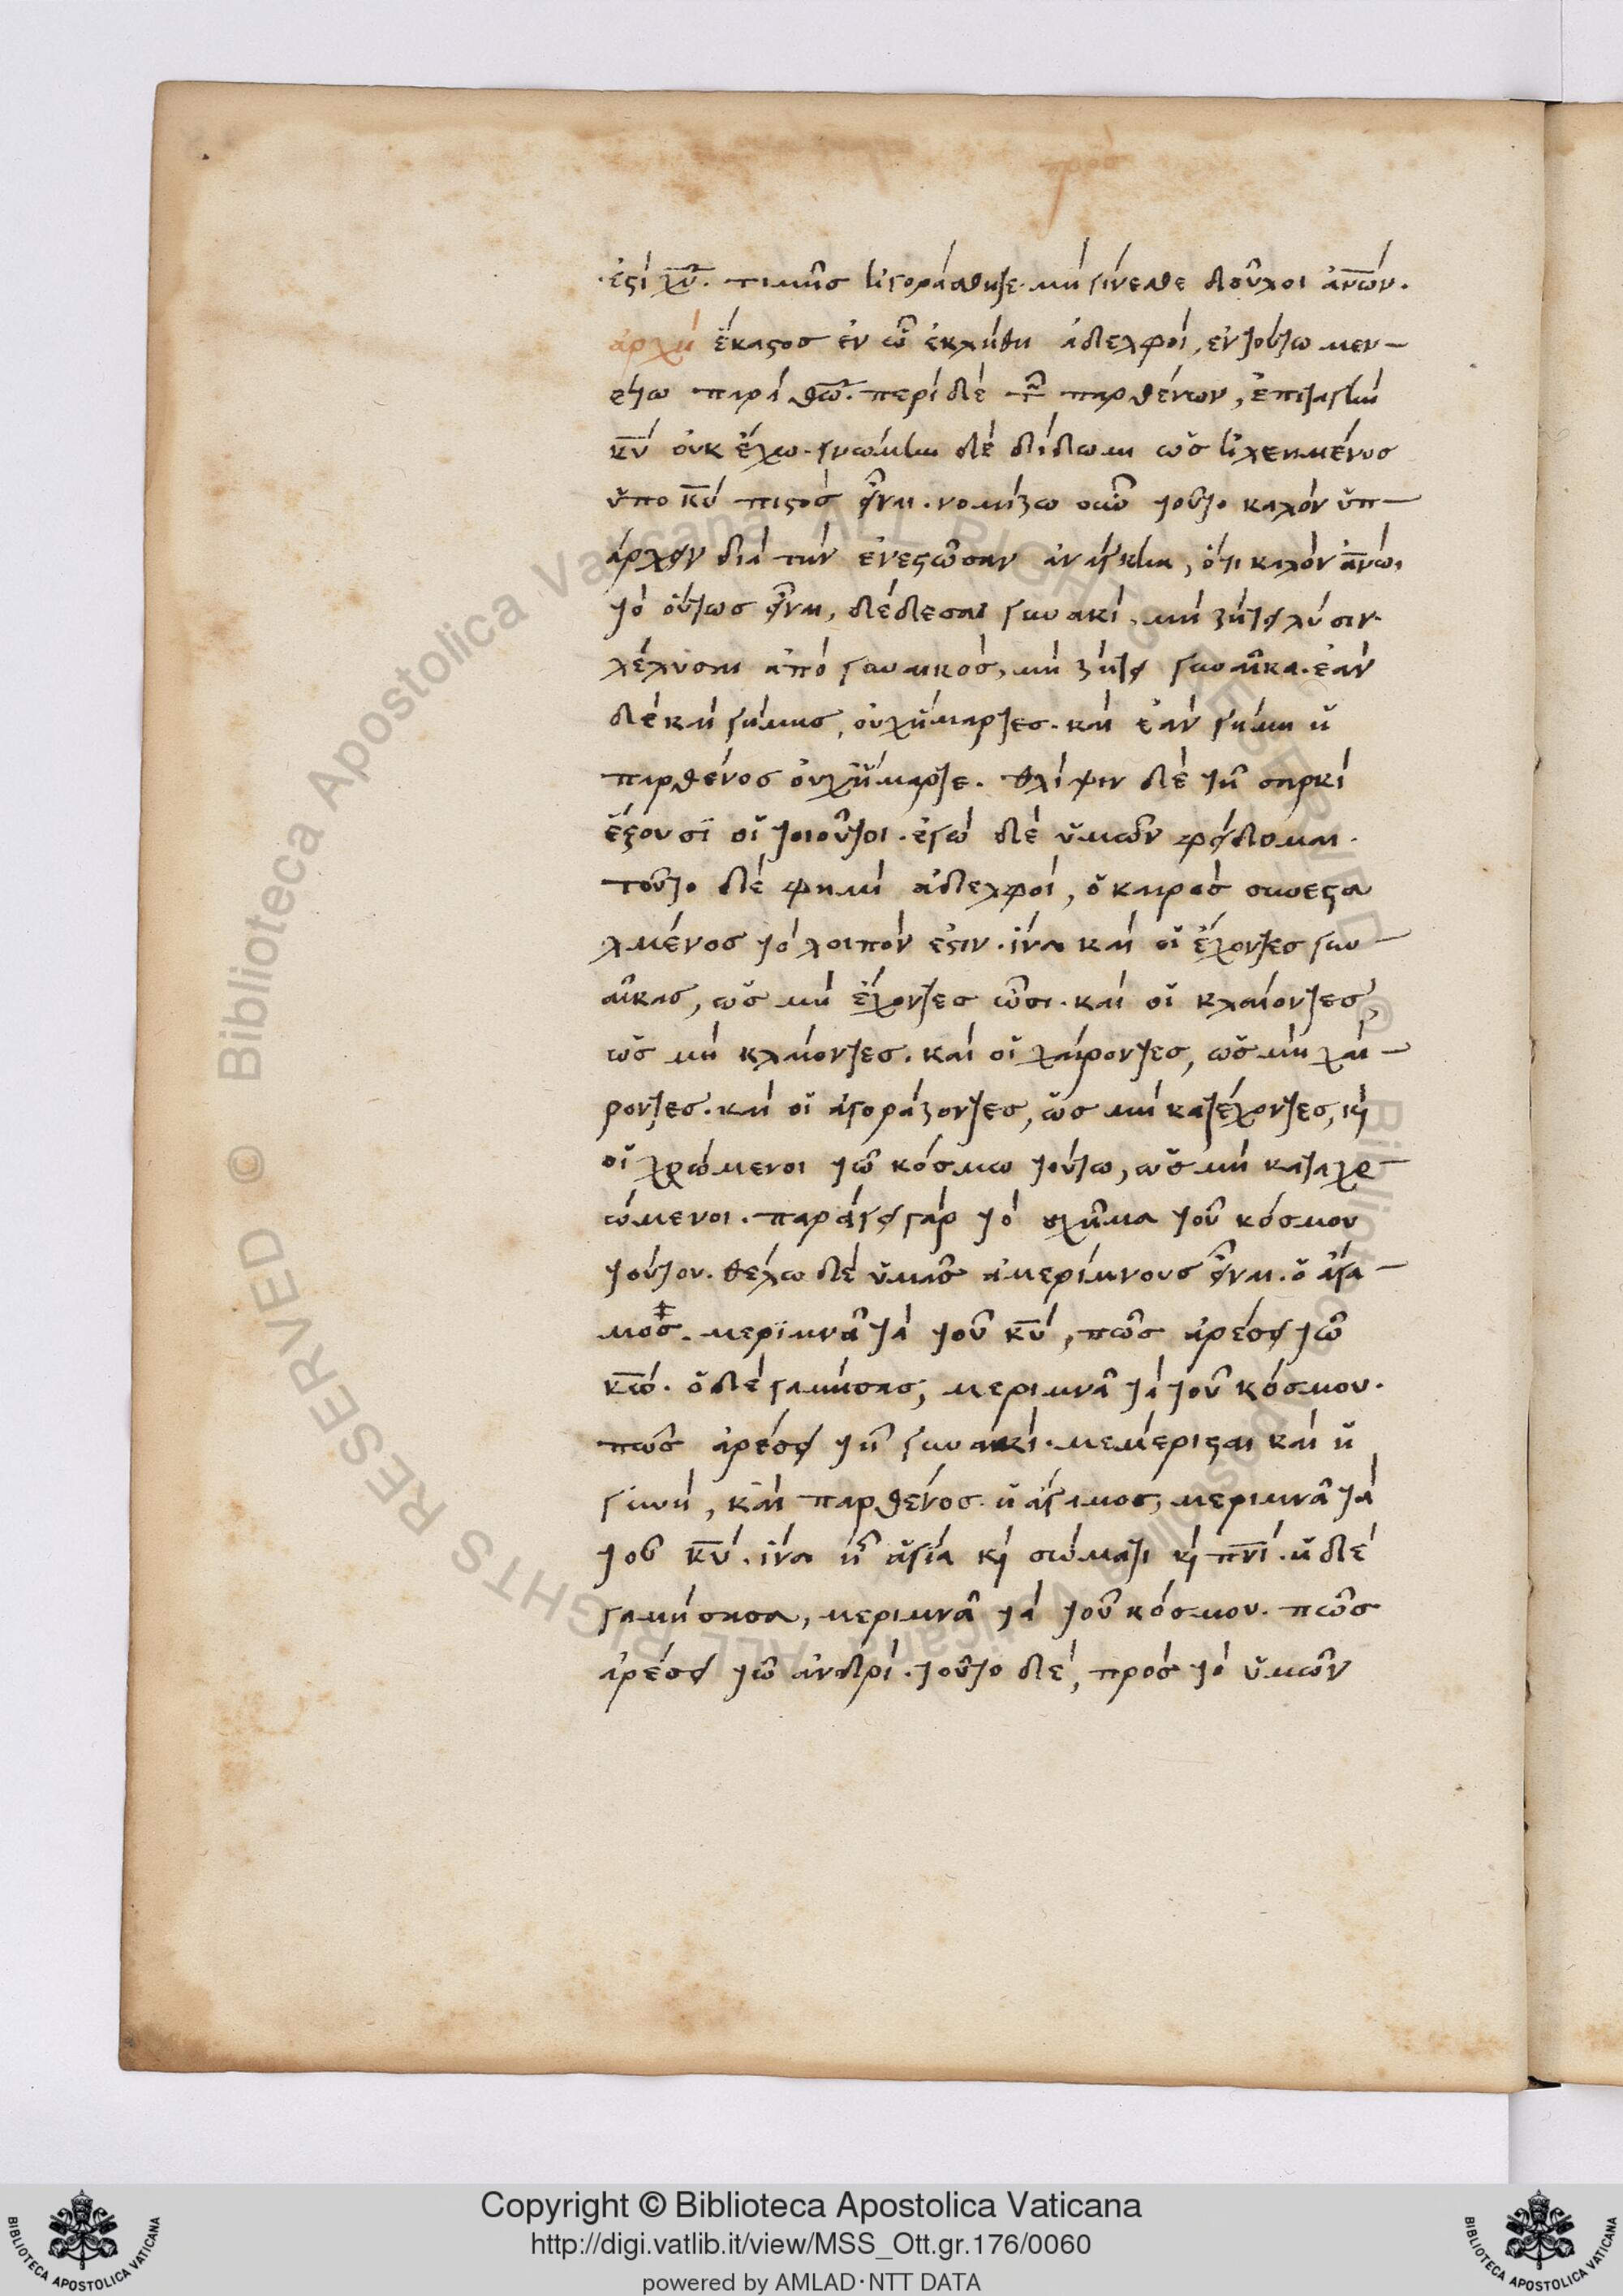 ἐστὶ χ̅υ̅. τιμῆς ἠγοράσθητε. μὴ γίνεσθε δοῦλοι ἀν̅ω̅ν.
ἀρχὴ ἕκαστος ἐν ὧ ἐκλήθη ἀδελφοὶ, ἐν τούτω μεν-
έτω παρὰ θ̅ω̅. περὶ δὲ τῶν παρθένων, ἐπιταγὴν
κ̅υ̅ οὐκ ἔχω. γνώμην δὲ δίδωμι ὡς ἠλεημένος
ὑπο κ̅υ̅ πιστὸς εἶναι. νομίζω οὖν τοῦτο καλὸν ὑπ-
άρχειν διὰ τὴν ἐνεστῶσαν ἀνάγκην, ὅτι καλὸν ἀν̅ω̅ι
τὸ οὕτως εἶναι, δέδεσαι γυναικὶ, μὴ ζήτει λύσιν.
λέλυσαι ἀπὸ γυναικὸς, μὴ ζήτει γυναῖκα. ἐὰν
δὲ καὶ γήμης, οὐχ ἥμαρτες. καὶ ἐὰν γήμη ἡ
παρθένος οὐχ ἥμαρτε. θλίψιν δὲ τῆ σαρκὶ
ἕξουσϊ οἱ τοιοῦτοι. ἐγὼ δὲ ὑμῶν φείδομαι.
τοῦτο δὲ φημὶ ἀδελφοὶ, ὁ καιρὸς συνεστα
λμένος τὸ λοιπὸν ἐστιν. ἵνα καὶ οἱ ἔχοντες γυν-
αῖκας, ὡς μὴ ἔχοντες ὦσι. καὶ οἱ κλαίοντες,
ὡς μὴ κλαίοντες. καὶ οἱ χαίροντες, ὡς μὴ χαί-
ροντες. καὶ οἱ ἀγοράζοντες, ὡς μὴ κατέχοντες, κ̀
οἱ χρώμενοι τῶ κόσμω τούτω, ὡς μὴ καταχρ-
ώμενοι. παράγει γὰρ τὸ σχῆμα τοῦ κόσμου
τούτου. θέλω δὲ ὑμᾶς ἀμερίμνους εἶναι. ὁ ἄγα-
μος. μερϊμνᾶ τὰ τοῦ κ̅υ̅, πῶς ἀρέσει τῶ
κ̅ω̅. ὁ δὲ γαμήσας, μεριμνᾶ τὰ τοῦ κόσμου.
πῶς ἀρέσει τῆ γυναικί. μεμέρισται καὶ ἡ
γυνὴ, καὶ παρθένος. ἡ ἄγαμος, μεριμνᾶ τὰ
τοῦ κ̅υ̅. ἵνα ἦ ἁγία κ̀ σώματι κ̀ πν̅ι̅. ἡ δὲ
γαμήσασα, μεριμνᾶ τὰ τοῦ κόσμου. πῶς
ἀρέσει τῶ ἀνδρί. τοῦτο δὲ, πρὸς τὸ ὑμῶν
Copyright © Biblioteca Apostolica Vaticana
http://digi.vatlib.it/view/MSS_Ott.gr.176/0060
powered by AMLAD·NTT DATA